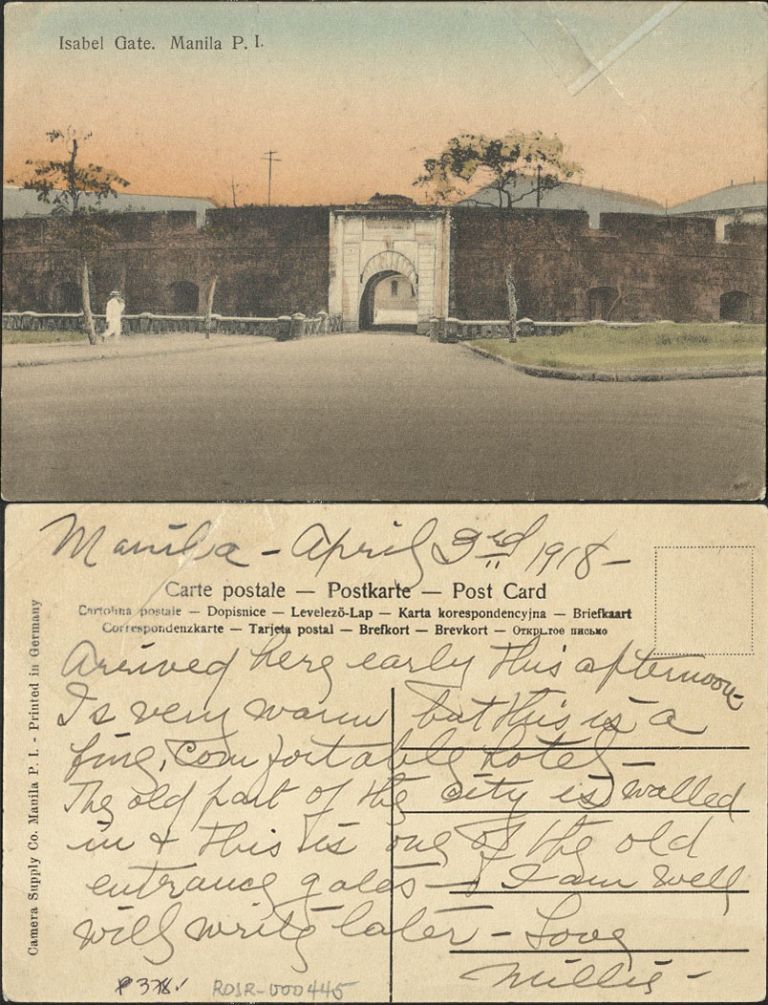 Isabel Gate. Manila P. I.
Manila - April 3rd 1918 -
Carte postale — Postkarte — Post Card
Cartolina postale — Dopisnice — Levelezö-Lap — Karta korespondencyjna — Briefkaart
Correspondenzkarte — Tarjeta postal — Brefkort — Brevkort — Открытое письмо
Arrived here early this afternoon -
Is very warm but this is a
fine, comfortable hotel -
The old part of the city is walled
in + this is one of the old
entrance gates - I am well
will write later - Love
Millie -
Camera Supply Co. Manila P. I. - Printed in Germany
P378!
RDSR-000445